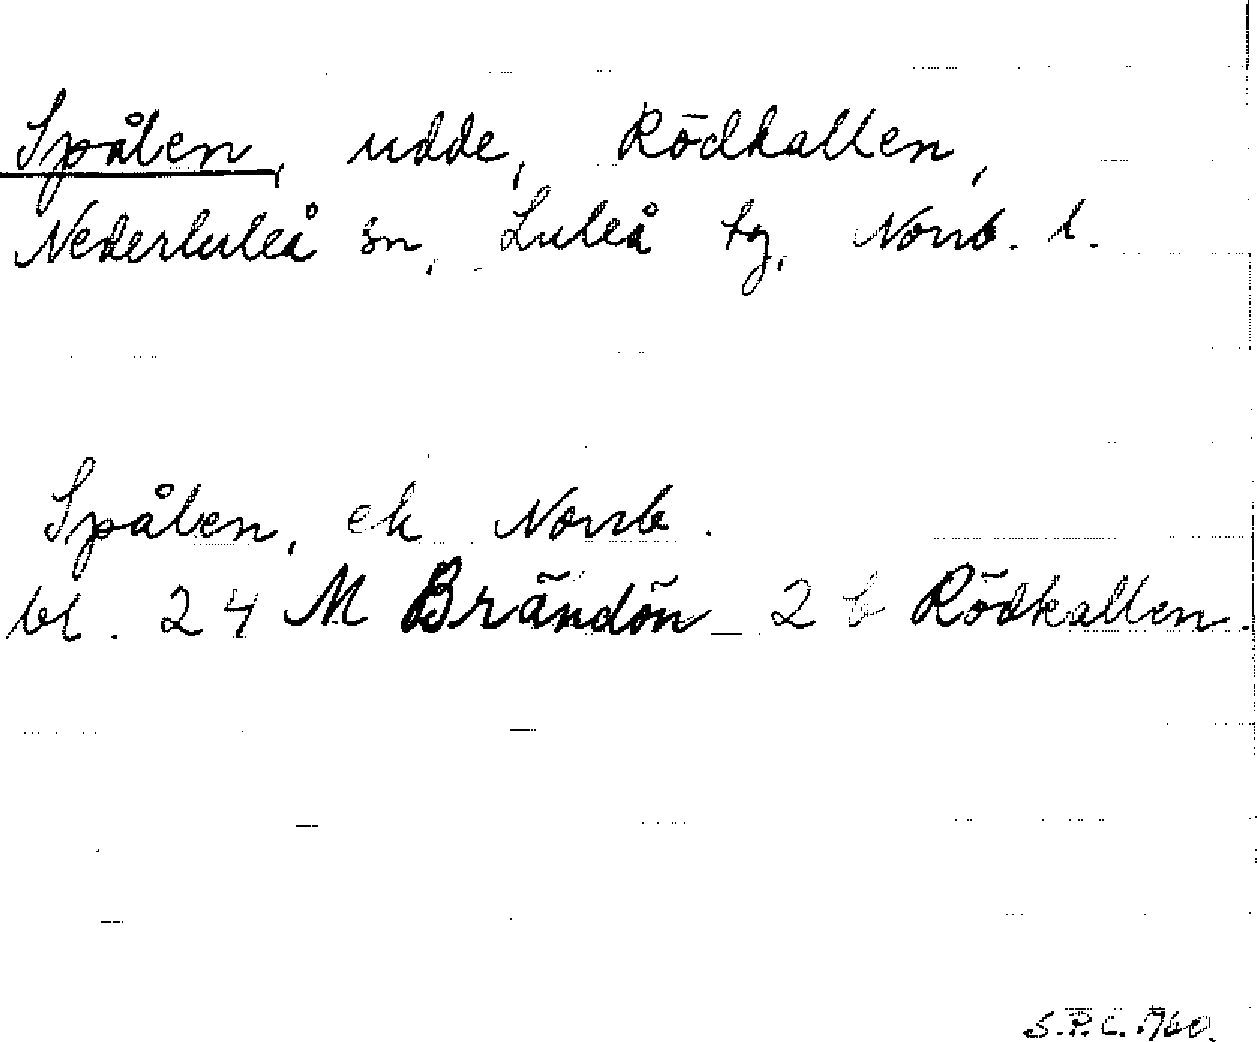 Spålen, udde, Rödkallen,
Nederluleå sn, Luleå tg, Norrb. l.
Spålen, ek Norrb.
bl. 24 M Brändön _ 2 b Rödkallen.
S.P.C. 1960.